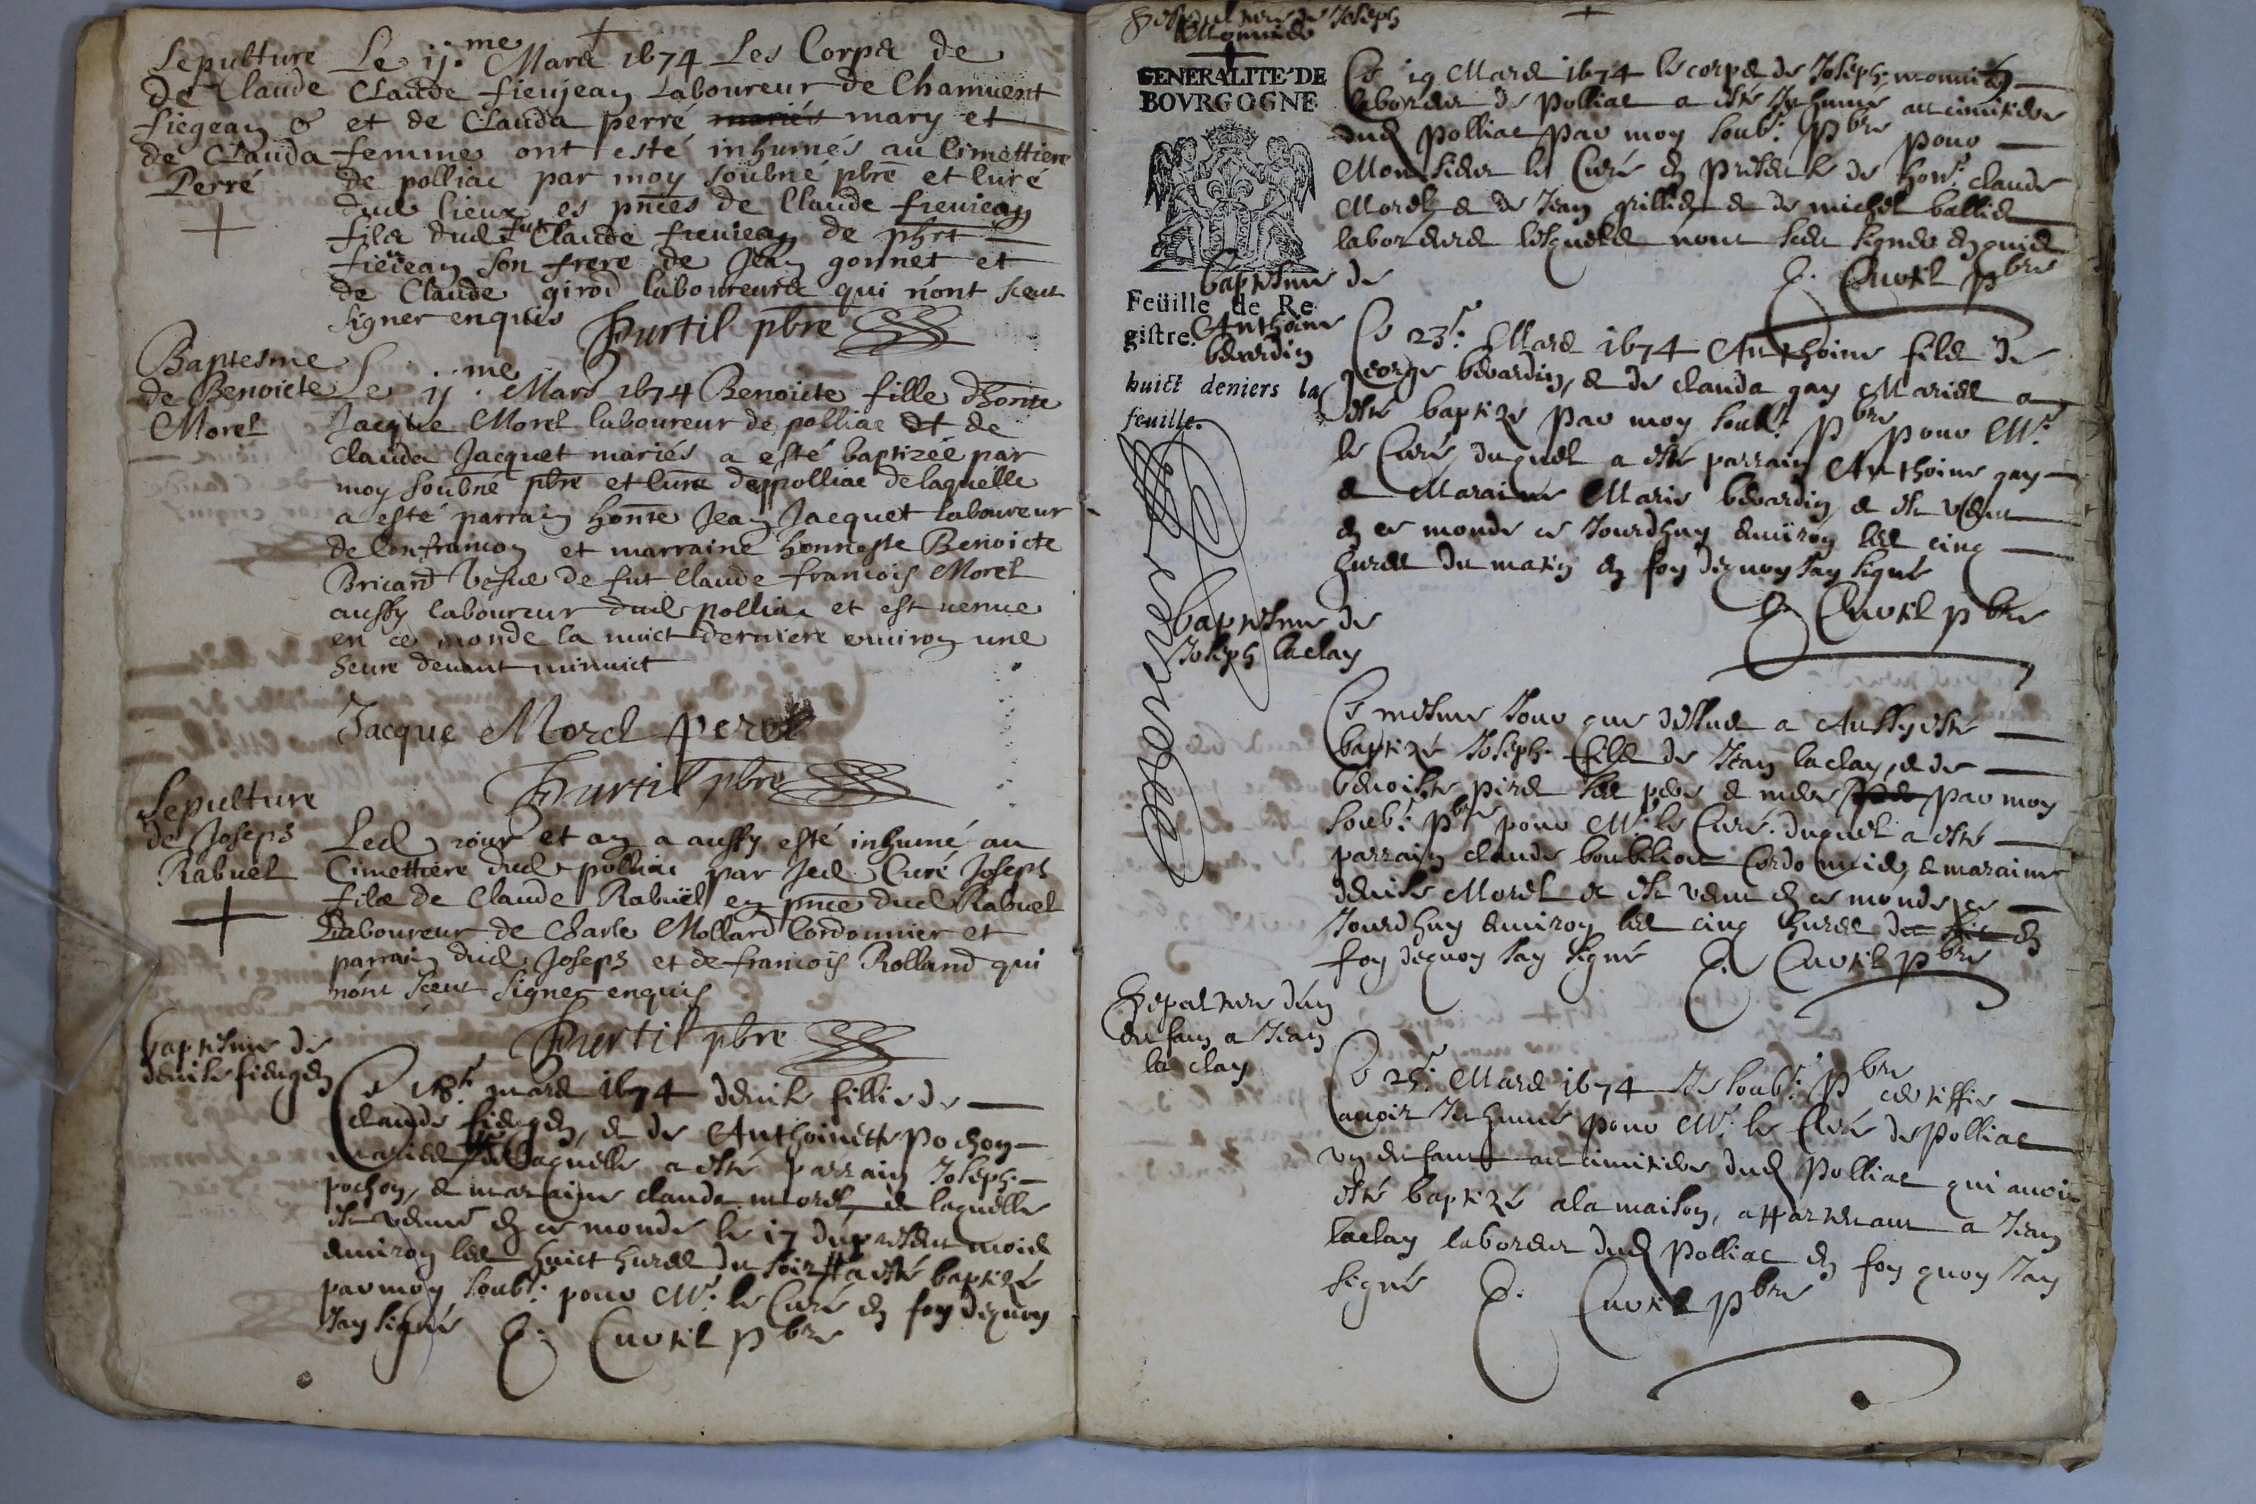 Sepulture
de Claude
fiegean &
de Clauda
Perré
Le ij.me Mars 1674 Les Corps de
Claude fieujean Laboureur de Chanuent
et de Clauda perré mariés mary et
femme ont esté inhumés au Cimettiere
de polliac par moy soubné pbre et Curé
dud lieux es pnces de Claude fieujean
fils dud fut Claude fieujean de phrt
fieujean son frere de Jean gonnet et
de Claude girod laboureurs qui n'ont sceu
signer enquis
Curtil pbre
Baptesme
de Benoicte
Morel
Le ij.me Mars 1674 Benoicte fille d'honte
Jacque Morel laboureur de polliac et de
Clauda Jacquet mariés a esté baptizée par
moy soubné pbre et Curé de polliac de laquelle
a esté parrain honte Jean Jacquet laboureur
de Confrancon et marraine honneste Benoicte
Bricard vefue de fut Claude francois Morel
aussy laboureur dud polliac et est uenue
en ce monde la nuict derniere enuiron une
heure deuant minuict
Jacque Morel pere
Curtil pbre
Sepulture
de Joseph
Rabuel
Led jour et an a aussy esté inhumé au
Cimettiere dud polliac par Jed Curé Joseph
fils de Claude Rabuël en pnce dud Rabuel
Laboureur de Charle Mollard Cordonnier et
parrain dud Joseph et de francois Rolland qui
n'ont sceu signer enquis
Curtil pbre
baptesme de
denise fieugen
Ce 18e mars 1674 denise fillie de
claude fieugen, & de Anthoinette pochon
maries de laquelle a esté parrain Joseph
pochon, & marraine clauda morel, & laquelle
est venue en ce monde le 17 du present mois
enuiron les huict hures du soir a esté baptizé
par moy soubt. pour Mr. le Curé en foy dequoy
Jay signé C. Curtil pbre
Sepulture de Joseph
Monnier
GENERALITE DE
BOVRGOGNE
Ce 19 Mars 1674 le corps de Joseph monnier
laboreur de Polliac a esté Inhumé au cimitiere
dud Polliac par moy soubt. pbre pour
Monsieur le Curé en presence de hont. claude
Morel & de Jean grillier & de michel ballier
laboreurs lesquels nont sceu signer enquis
C. Curtil pbre
baptesme de
Anthoine
beuardin
Feüille de Re
gistre.
huict deniers la
feuille.
Ce 23e. Mars 1674 Anthoine fils de
george beuardin, & de clauda gay Maries a
esté baptizé par moy soubt. pbre pour Mr.
le Curé duquel a esté parrain Anthoine gay
& Maraine Marie beuardin, & est venu
en ce monde ce Jourdhuy enuiron les cinq
hures du matin en foy dequoy Jay signé
C. Curtil pbre
baptesme de
Joseph laclay
Ce mesme Jour que dessus a Aussy esté
baptizé Joseph fils de Jean laclay, & de
benoiste pird ses pere & mere par moy
soubt. pbre pour Mr. le Curé. duquel a esté
parrain claude boubillon Cordonnier, & maraine
denise Morel & est venu en ce monde ce
Jourdhuy enuiron les cinq hures du soir en
foy dequoy Jay signé C. Curtil pbre
Sepulture d'un
enfant a Jean
laclay
Ce 25e. Mars 1674 Je soubt. pbre certiffie
auoir Inhumé pour Mr. le Curé de Polliac
un enfant au cimitiere dud Polliac qui auoit
esté baptizé a la maison, appartenant a Jean
laclay laboreur dud Polliac en foy quoy Jay
signé C. Curtil pbre